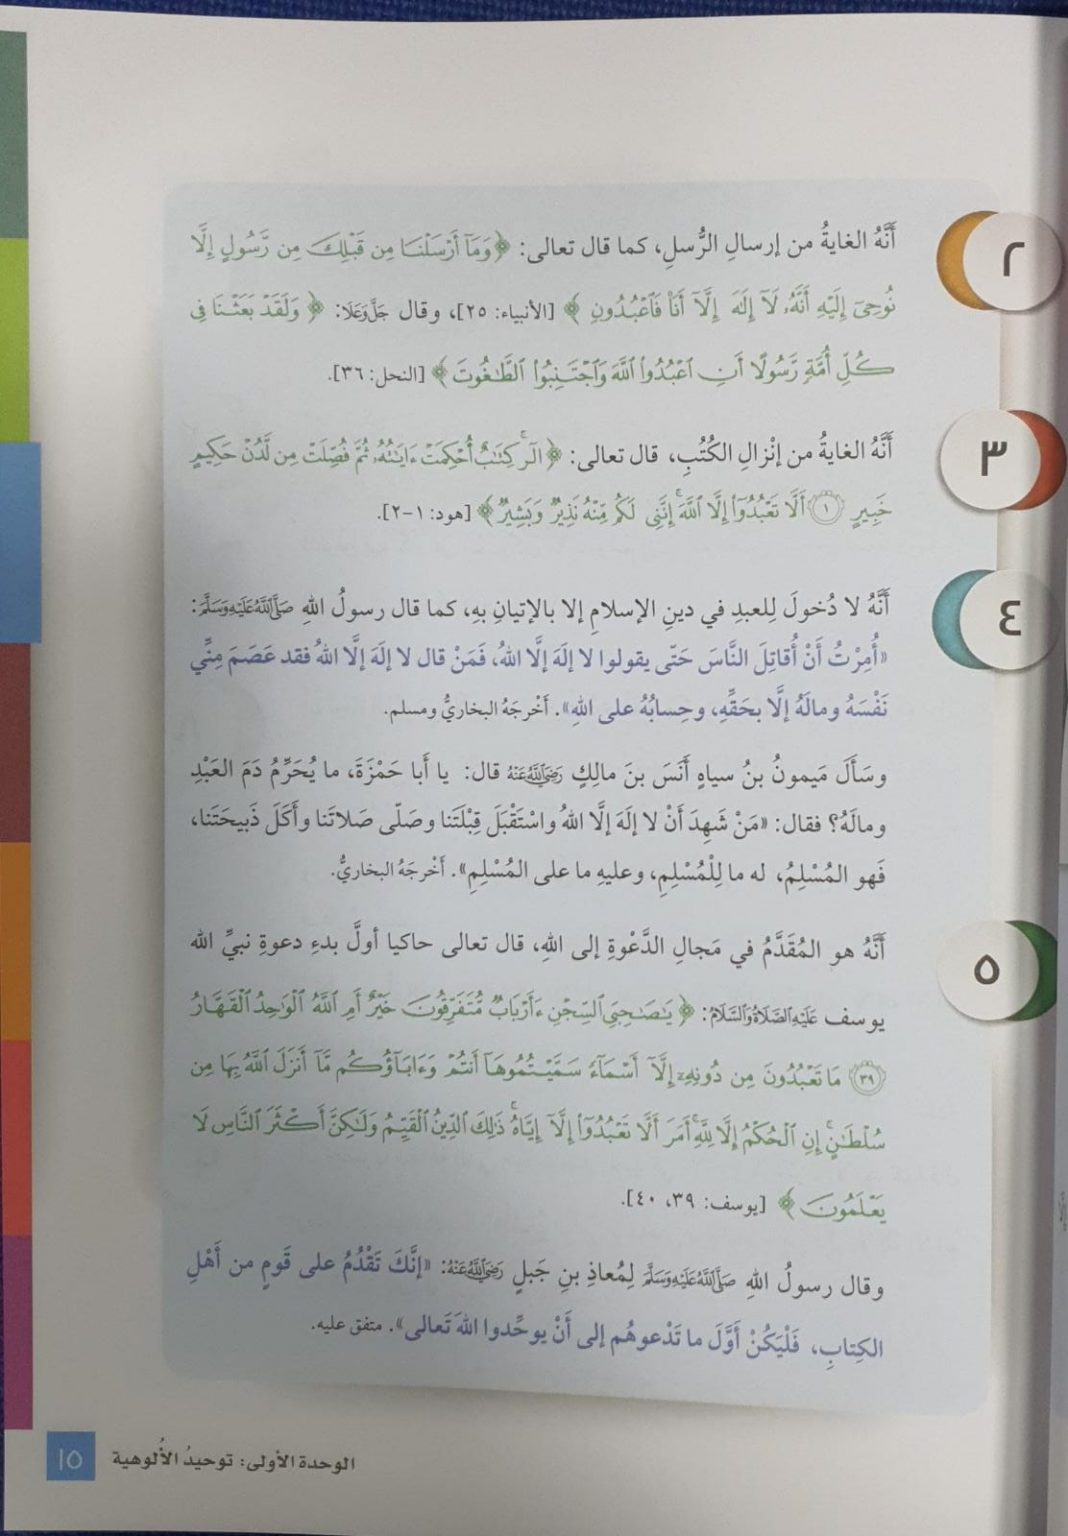 ٢
أَنَّهُ الغايةُ من إرسالِ الرُّسلِ، كما قال تعالى: ﴿وَمَآ أَرْسَلْنَا مِن قَبْلِكَ مِن رَّسُولٍ إِلَّا
نُوحِىٓ إِلَيْهِ أَنَّهُۥ لَآ إِلَٰهَ إِلَّآ أَنَا۠ فَٱعْبُدُونِ﴾ [الأنبياء: ٢٥]، وقال جَلَّ وَعَلَا: ﴿وَلَقَدْ بَعَثْنَا فِى
كُلِّ أُمَّةٍ رَّسُولًا أَنِ ٱعْبُدُوا۟ ٱللَّهَ وَٱجْتَنِبُوا۟ ٱلطَّٰغُوتَ﴾ [النحل: ٣٦].
٣
أَنَّهُ الغايةُ من إنْزالِ الكُتُبِ، قال تعالى: ﴿الٓر ۚ كِتَٰبٌ أُحْكِمَتْ ءَايَٰتُهُۥ ثُمَّ فُصِّلَتْ مِن لَّدُنْ حَكِيمٍ
خَبِيرٍ ١ أَلَّا تَعْبُدُوٓا۟ إِلَّا ٱللَّهَ ۚ إِنَّنِى لَكُم مِّنْهُ نَذِيرٌ وَبَشِيرٌ﴾ [هود: ١-٢].
٤
أَنَّهُ لا دُخولَ لِلعبدِ في دينِ الإسلامِ إلا بالإتيانِ بهِ، كما قال رسولُ اللهِ صَلَّى اللَّهُ عَلَيْهِ وَسَلَّمَ:
«أُمِرْتُ أَنْ أُقاتِلَ النَّاسَ حَتّى يقولوا لا إلَهَ إلَّا اللهُ، فَمَنْ قال لا إلَهَ إلَّا اللهُ فقد عَصَمَ مِنِّي
نَفْسَهُ ومالَهُ إلَّا بحَقِّهِ، وحِسابُهُ على اللهِ». أَخْرجَهُ البخاريُّ ومسلم.
وسَأَلَ مَيمونُ بنُ سياهٍ أَنَسَ بنَ مالِكٍ رَضِيَ اللَّهُ عَنْهُ قال: يا أَبا حَمْزَةَ، ما يُحَرِّمُ دَمَ العَبْدِ
ومالَهُ؟ فقال: «مَنْ شَهِدَ أَنْ لا إلَهَ إلَّا اللهُ واسْتَقْبَلَ قِبْلَتَنا وصَلّى صَلاتَنا وأَكَلَ ذَبيحَتَنا،
فَهو المُسْلِمُ، له ما لِلْمُسْلِمِ، وعليهِ ما على المُسْلِمِ». أَخْرجَهُ البخاريُّ.
٥
أَنَّهُ هو المُقَدَّمُ في مَجالِ الدَّعْوةِ إلى اللهِ، قال تعالى حاكيا أولَّ بدءِ دعوةِ نبيِّ الله
يوسف عَلَيْهِ الصَّلَاةُ وَالسَّلَامُ: ﴿يَٰصَٰحِبَىِ ٱلسِّجْنِ ءَأَرْبَابٌ مُّتَفَرِّقُونَ خَيْرٌ أَمِ ٱللَّهُ ٱلْوَٰحِدُ ٱلْقَهَّارُ
٣٩ مَا تَعْبُدُونَ مِن دُونِهِۦٓ إِلَّآ أَسْمَآءً سَمَّيْتُمُوهَآ أَنتُمْ وَءَابَآؤُكُم مَّآ أَنزَلَ ٱللَّهُ بِهَا مِن
سُلْطَٰنٍ ۚ إِنِ ٱلْحُكْمُ إِلَّا لِلَّهِ ۚ أَمَرَ أَلَّا تَعْبُدُوٓا۟ إِلَّآ إِيَّاهُ ۚ ذَٰلِكَ ٱلدِّينُ ٱلْقَيِّمُ وَلَٰكِنَّ أَكْثَرَ ٱلنَّاسِ لَا
يَعْلَمُونَ﴾ [يوسف: ٣٩، ٤٠].
وقال رسولُ اللهِ صَلَّى اللَّهُ عَلَيْهِ وَسَلَّمَ لِمُعاذِ بنِ جَبلٍ رَضِيَ اللَّهُ عَنْهُ: «إنَّكَ تَقْدُمُ على قَومٍ من أَهْلِ
الكِتابِ، فَلْيَكُنْ أَوَّلَ ما تَدْعوهُم إلى أَنْ يوحِّدوا اللهَ تَعالى». متفق عليه.
الوحدة الأولى: توحيدُ الأُلوهية
١٥